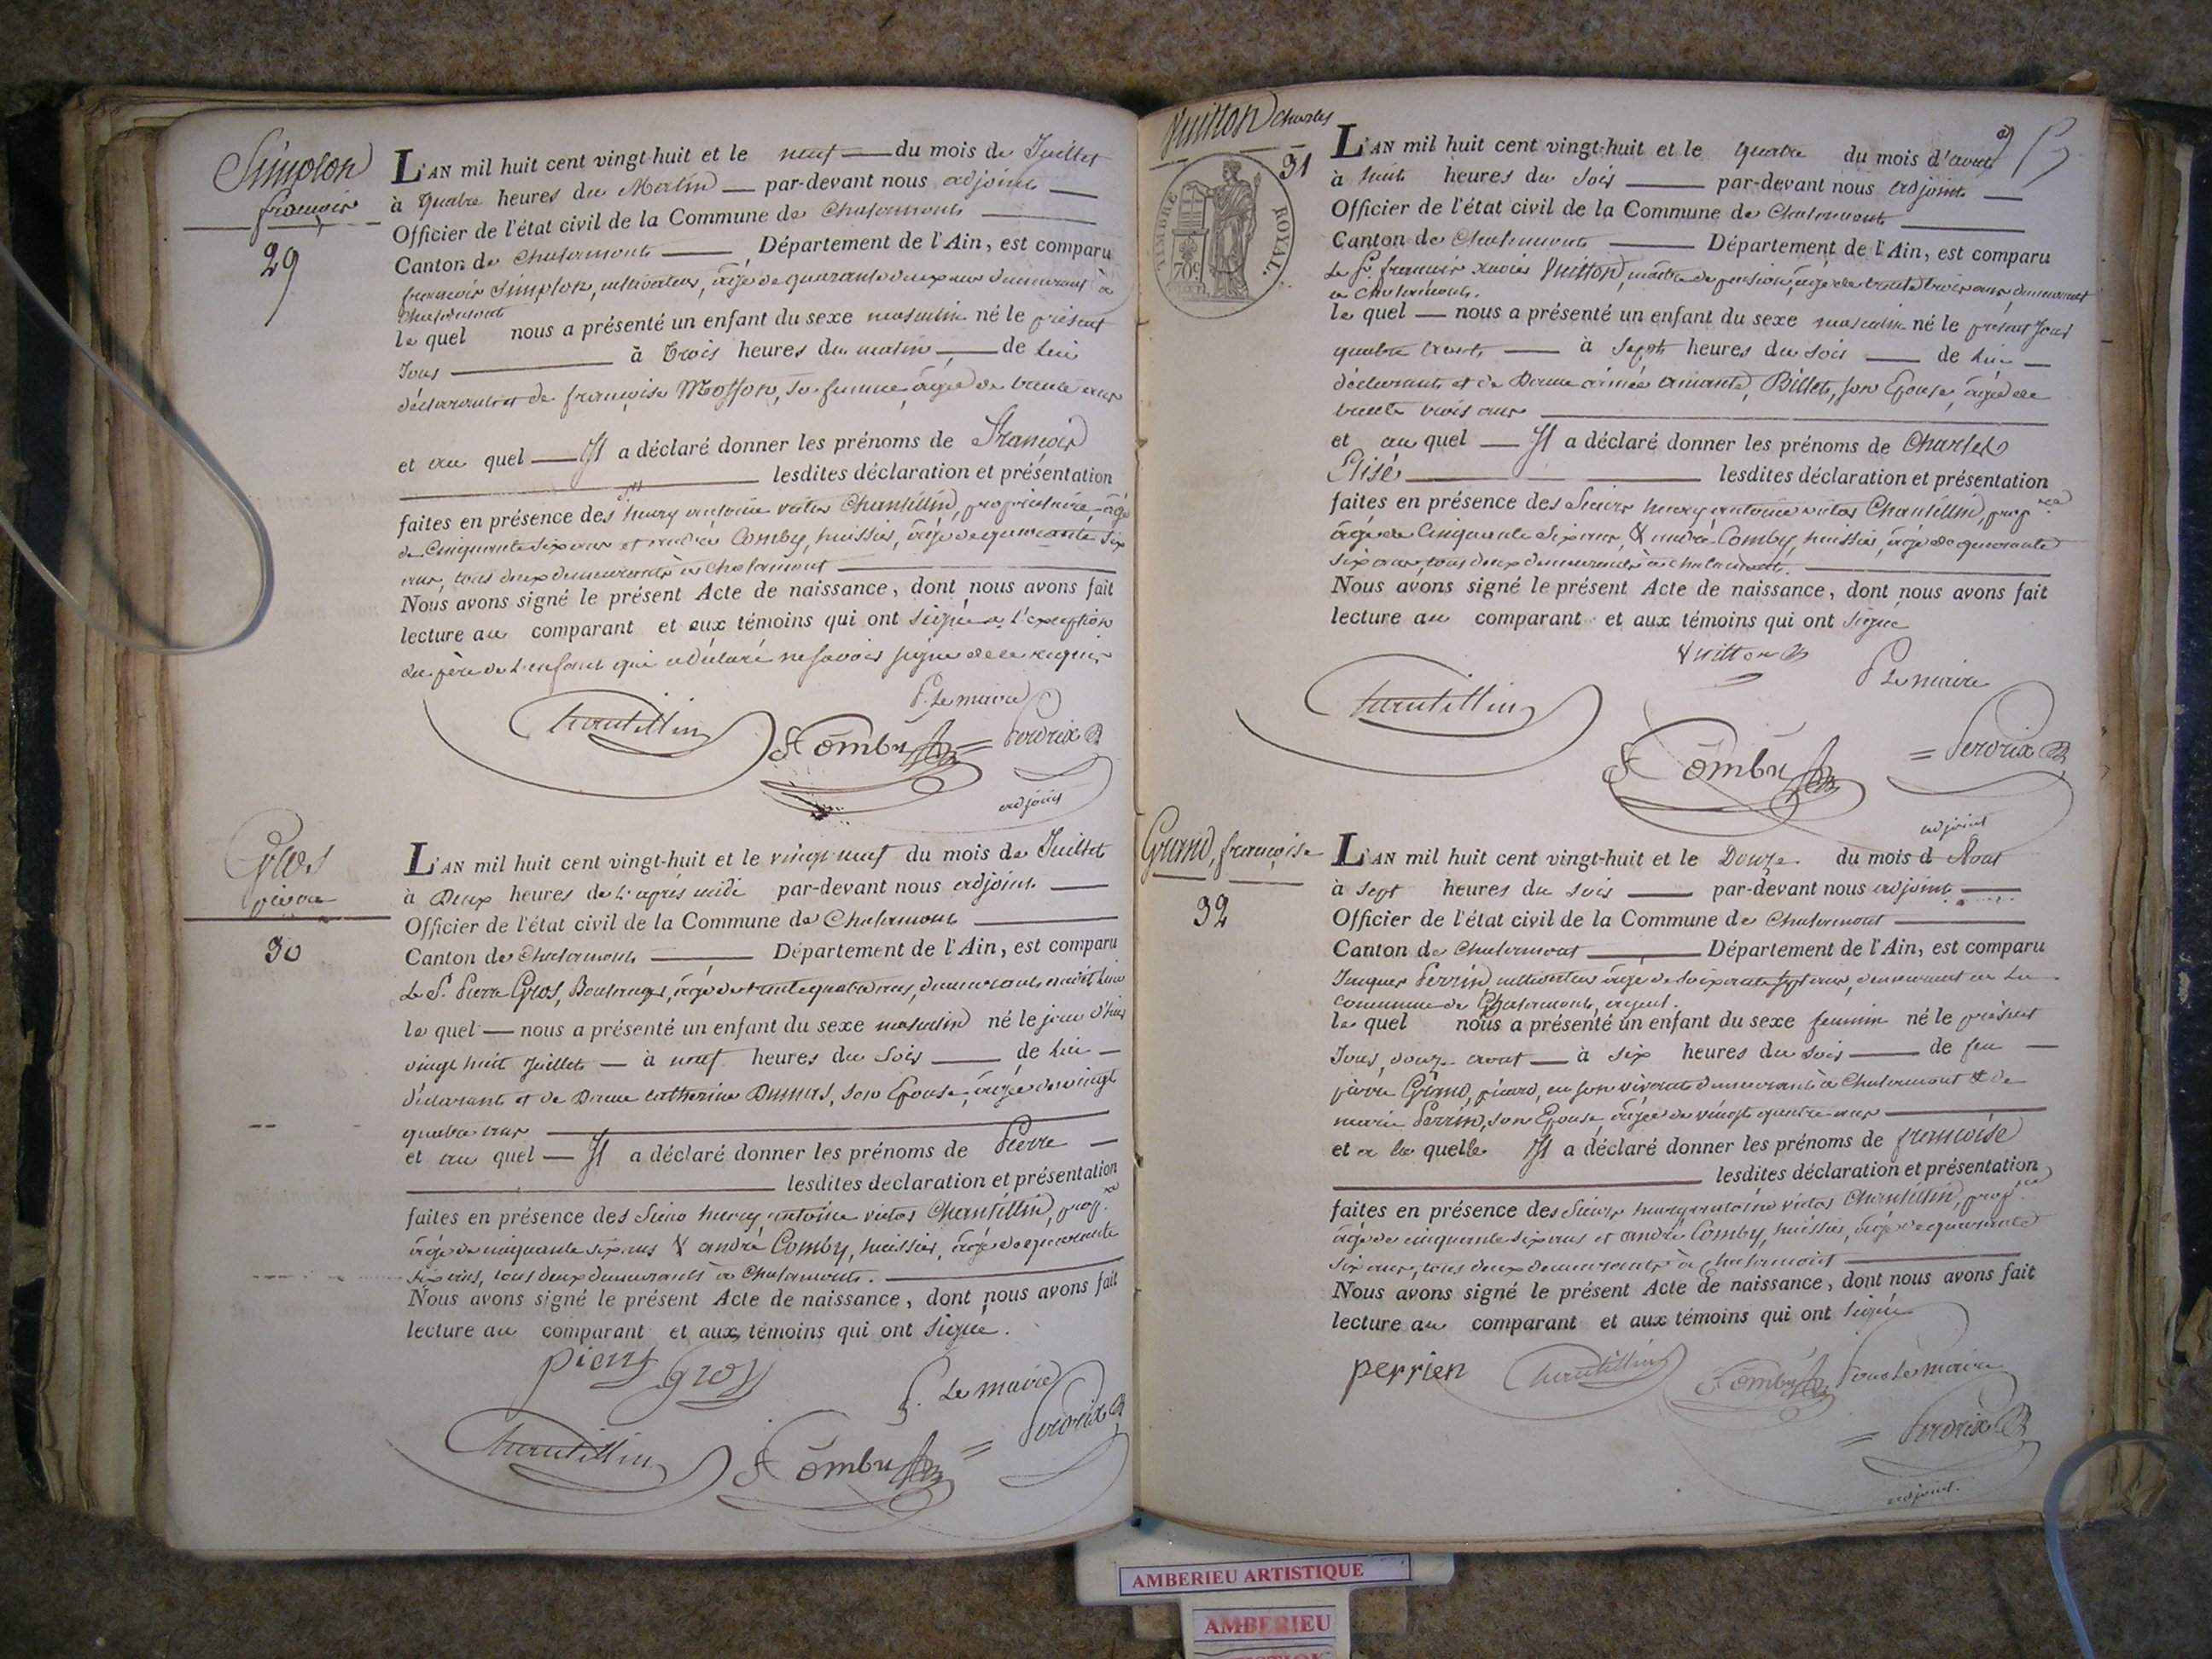 Simplon
françois
29
L'AN mil huit cent vingt-huit et le neuf du mois de Juillet
à quatre heures du Matin par-devant nous adjoint
Officier de l'état civil de la Commune de Chalamont
Canton de Chalamont Département de l'Ain, est comparu
françois Simplon, cultivateur, âgé de quarante deux ans demeurant à
Chalamont
le quel nous a présenté un enfant du sexe masculin né le présent
Jour à trois heures du matin de lui
déclarant et de françoise sa femme, âgée de trente ans
et au quel Il a déclaré donner les prénoms de François
lesdites déclaration et présentation
faites en présence des Srs henry antoine victor Chantillin, propriétaire, âgé
de Cinquante six ans et andré Comby, huissier, âgé de quarante six
ans, tous deux demeurants à Chalamont
Nous avons signé le présent Acte de naissance, dont nous avons fait
lecture au comparant et aux témoins qui ont signé à l'exception
du père de l'enfant qui a déclaré ne savoir signer de ce requis
P. Le maire
Chantillin Comby = Perdrix
adjoint
Gros
pierre
30
L'AN mil huit cent vingt-huit et le vingt neuf du mois de Juillet
à Deux heures de l'après midi par-devant nous adjoint
Officier de l'état civil de la Commune de Chalamont
Canton de Chalamont Département de l'Ain, est comparu
Le S. Pierre Gros, Boulanger, âgé de trente quatre ans, demeurant audit lieu
le quel nous a présenté un enfant du sexe masculin né le jour d'hier
vingt huit Juillet à neuf heures du Soir de lui
déclarant et de Dame catherine Dumas, son Epouse, âgée de vingt
quatre ans
et au quel Il a déclaré donner les prénoms de Pierre
lesdites declaration et présentation
faites en présence des Sieurs henry antoine victor Chantillin, prop.re
âgé de cinquante six ans & andré Comby, huissier, âgé de quarante
six ans, tous deux demeurants à Chalamont.
Nous avons signé le présent Acte de naissance, dont nous avons fait
lecture au comparant et aux témoins qui ont signé.
pierre gros
P. Le maire
Chantillin Comby = Perdrix
Vuitton Charles
31
TIMBRE ROYAL.
70c
L'AN mil huit cent vingt-huit et le quatre du mois d'août
à huit heures du soir par-devant nous adjoint
Officier de l'état civil de la Commune de Chalamont
Canton de Chalamont Département de l'Ain, est comparu
Le Sr. françois Xavier Vuitton, maître de pension, âgé de trente trois ans, demeurant
à Chalamont.
le quel nous a présenté un enfant du sexe masculin né le présent Jour
quatre août à sept heures du soir de lui
déclarant et de Dame aimée amante, Billet, son Epouse, âgée de
trente trois ans
et au quel Il a déclaré donner les prénoms de Charles
Elisé lesdites déclaration et présentation
faites en présence des Sieurs henry antoine victor Chantillin, prop.re
âgé de Cinquante six ans, & andré Comby, huissier, âgé de quarante
six ans, tous deux demeurants à Chalamont.
Nous avons signé le présent Acte de naissance, dont nous avons fait
lecture au comparant et aux témoins qui ont signé
Vuitton
P Le maire
Chantillin Comby = Perdrix
adjoint
Grand, françoise
32
L'AN mil huit cent vingt-huit et le Douze du mois d Aout
à sept heures du soir par-devant nous adjoint
Officier de l'état civil de la Commune de Chalamont
Canton de Chalamont Département de l'Ain, est comparu
Jacques Perrin cultivateur âgé de soixante sept ans, demeurant en la
commune de Chalamont,
le quel nous a présenté un enfant du sexe feminin né le présent
Jour, douze aout à six heures du soir de feu
pierre Grand, en son vivant demeurant à Chalamont & de
marie Perrin, son Epouse, âgée de vingt quatre ans
et a la quelle Il a déclaré donner les prénoms de françoise
lesdites déclaration et présentation
faites en présence des Sieurs henry antoine victor Chantillin, prop.re
âgé de cinquante six ans et andré Comby, huissier, âgé de quarante
six ans, tous deux demeurants à Chalamont
Nous avons signé le présent Acte de naissance, dont nous avons fait
lecture au comparant et aux témoins qui ont signé
perrien Chantillin Comby Pour Le maire
= Perdrix
adjoint.
AMBERIEU ARTISTIQUE
AMBERIEU